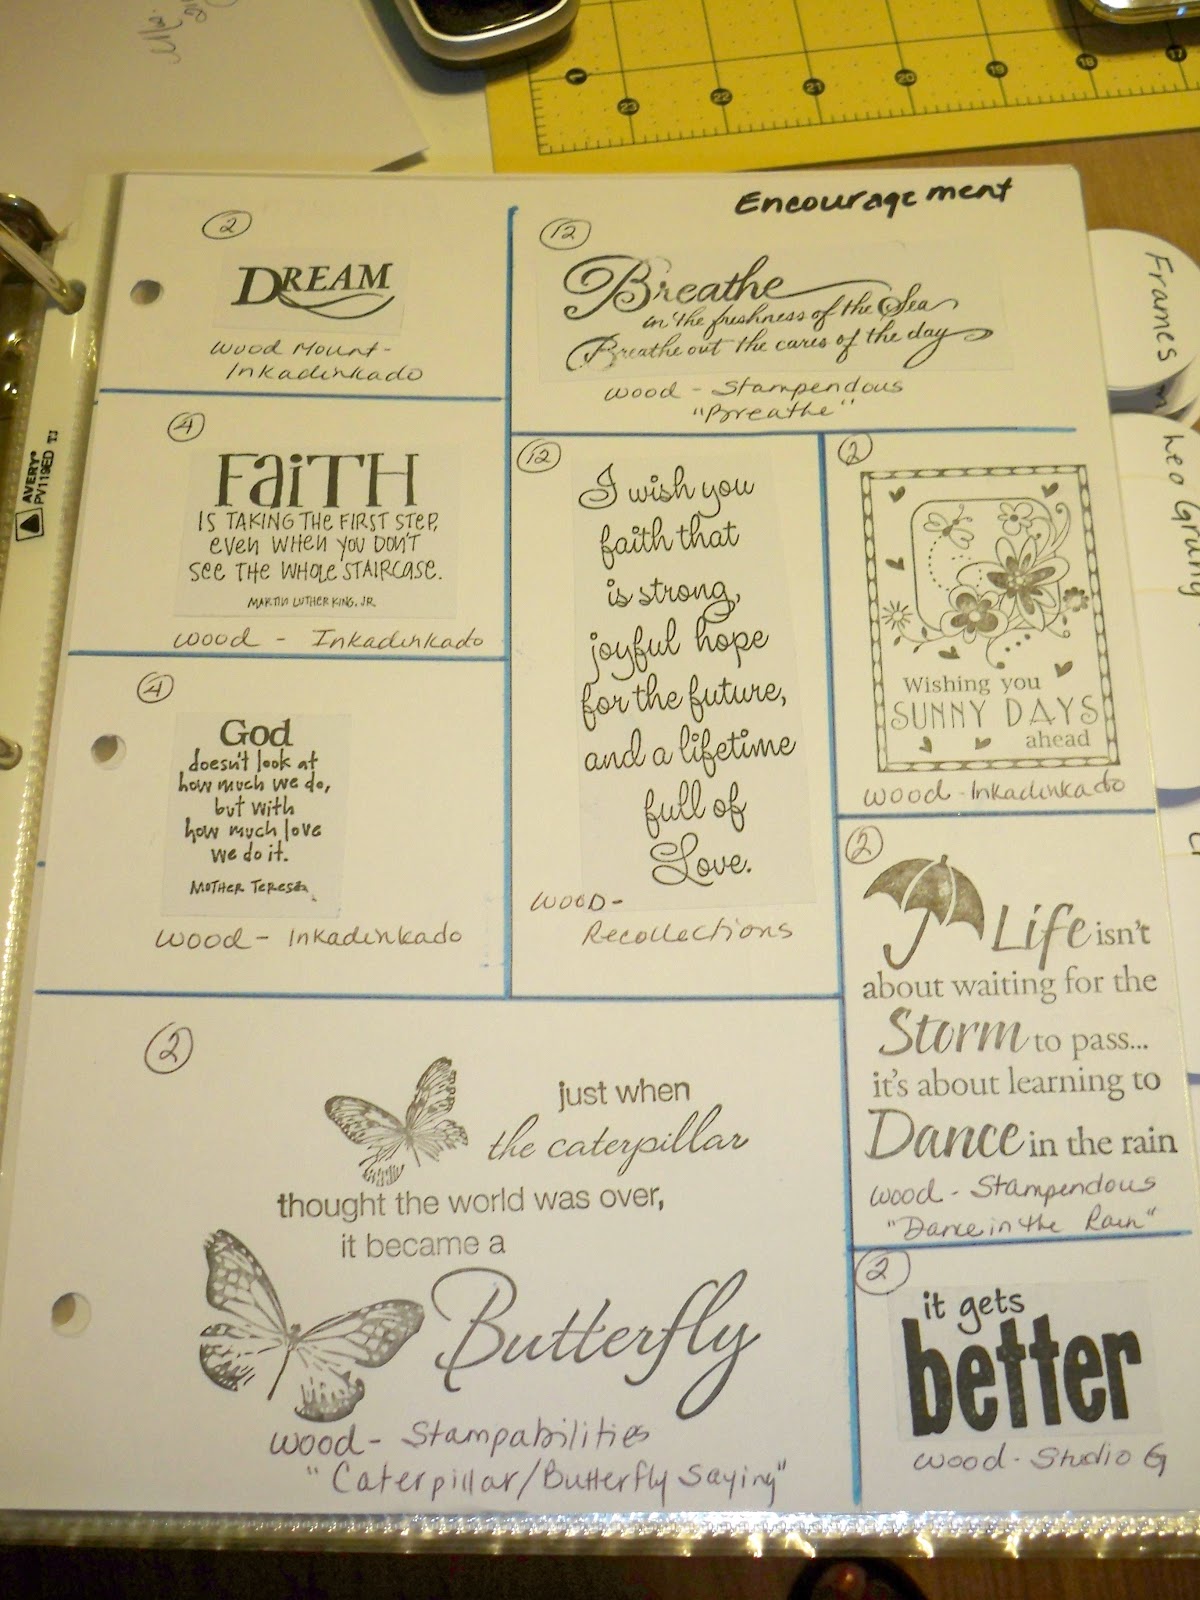 23
22
21
20
19
18
17
Encouragement
2
DREAM
Wood Mount-
Inkadinkado
12
Breathe
in the freshness of the Sea
Breathe out the cares of the day
wood - Stampendous
"Breathe"
4
FAiTH
IS TAKING THE FIRST STEP,
EVEN WHEN YOU DON'T
SEE THE WHOLE STAIRCASE.
MARTIN LUTHER KING, JR.
wood - Inkadinkado
4
God
doesn't look at
how much we do,
but with
how much love
we do it.
MOTHER TERESA
wood - Inkadinkado
12
I wish you
faith that
is strong,
joyful hope
for the future,
and a lifetime
full of
Love.
WOOD-
Recollections
2
Wishing you
SUNNY DAYS
ahead
wood - Inkadinkado
2
Life isn't
about waiting for the
Storm to pass...
it's about learning to
Dance in the rain
wood - Stampendous
"Dance in the Rain"
2
just when
the caterpillar
thought the world was over,
it became a
Butterfly
wood - Stampabilities
"Caterpillar/Butterfly Saying"
2
it gets
better
wood - Studio G
AVERY®
PV119ED TJ
Frames
Leo Grung